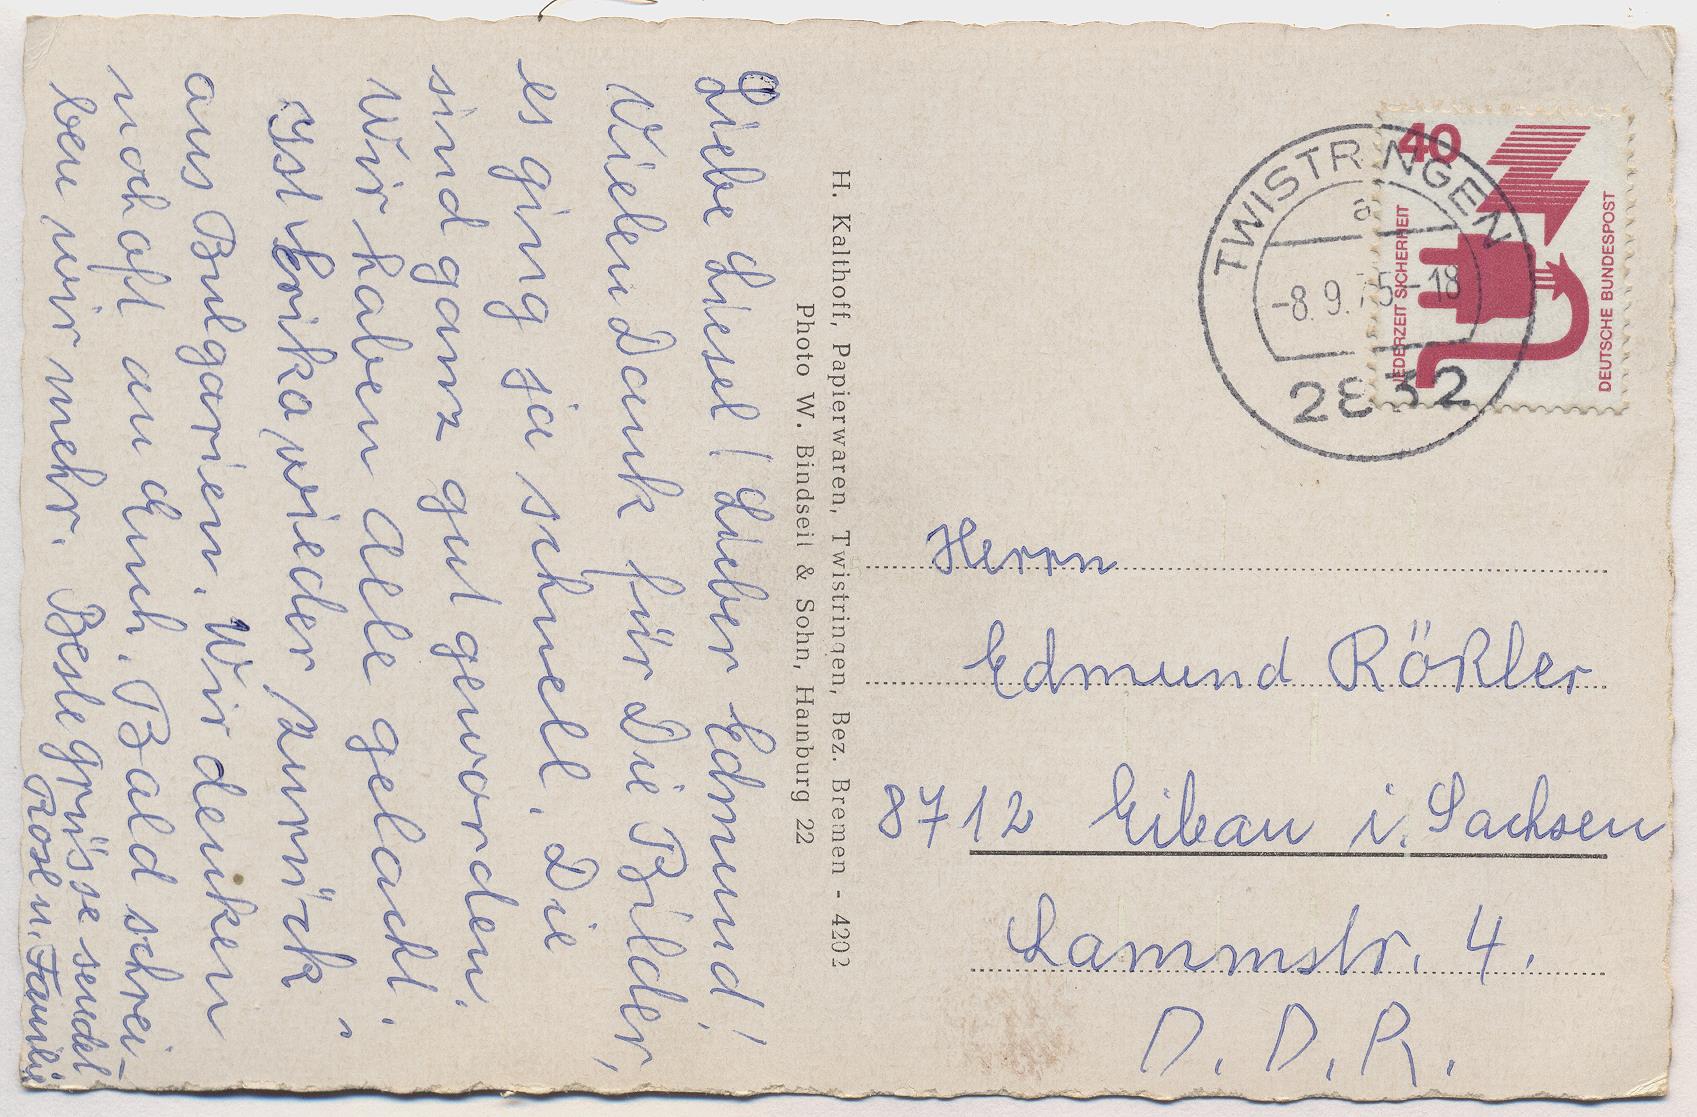 Liebe Liesel! Lieber Edmund!
Vielen Dank für Die Bilder,
es ging ja schnell. Die
sind ganz gut geworden.
Wir haben Alle gelacht.
Ist Erika wieder zurück
aus Bulgarien. Wir denken
noch oft an Euch. Bald schrei-
ben wir mehr. Beste grüsse sendet
Rosl u. Familie
H. Kalthoff, Papierwaren, Twistringen, Bez. Bremen - 4202
Photo W. Bindseil & Sohn, Hamburg 22
TWISTRINGEN
a
-8.9.75-18
2832
40
JEDERZEIT SICHERHEIT
DEUTSCHE BUNDESPOST
Herrn
Edmund Rößler
8712 Eibau i. Sachsen
Lammstr. 4.
D. D. R.